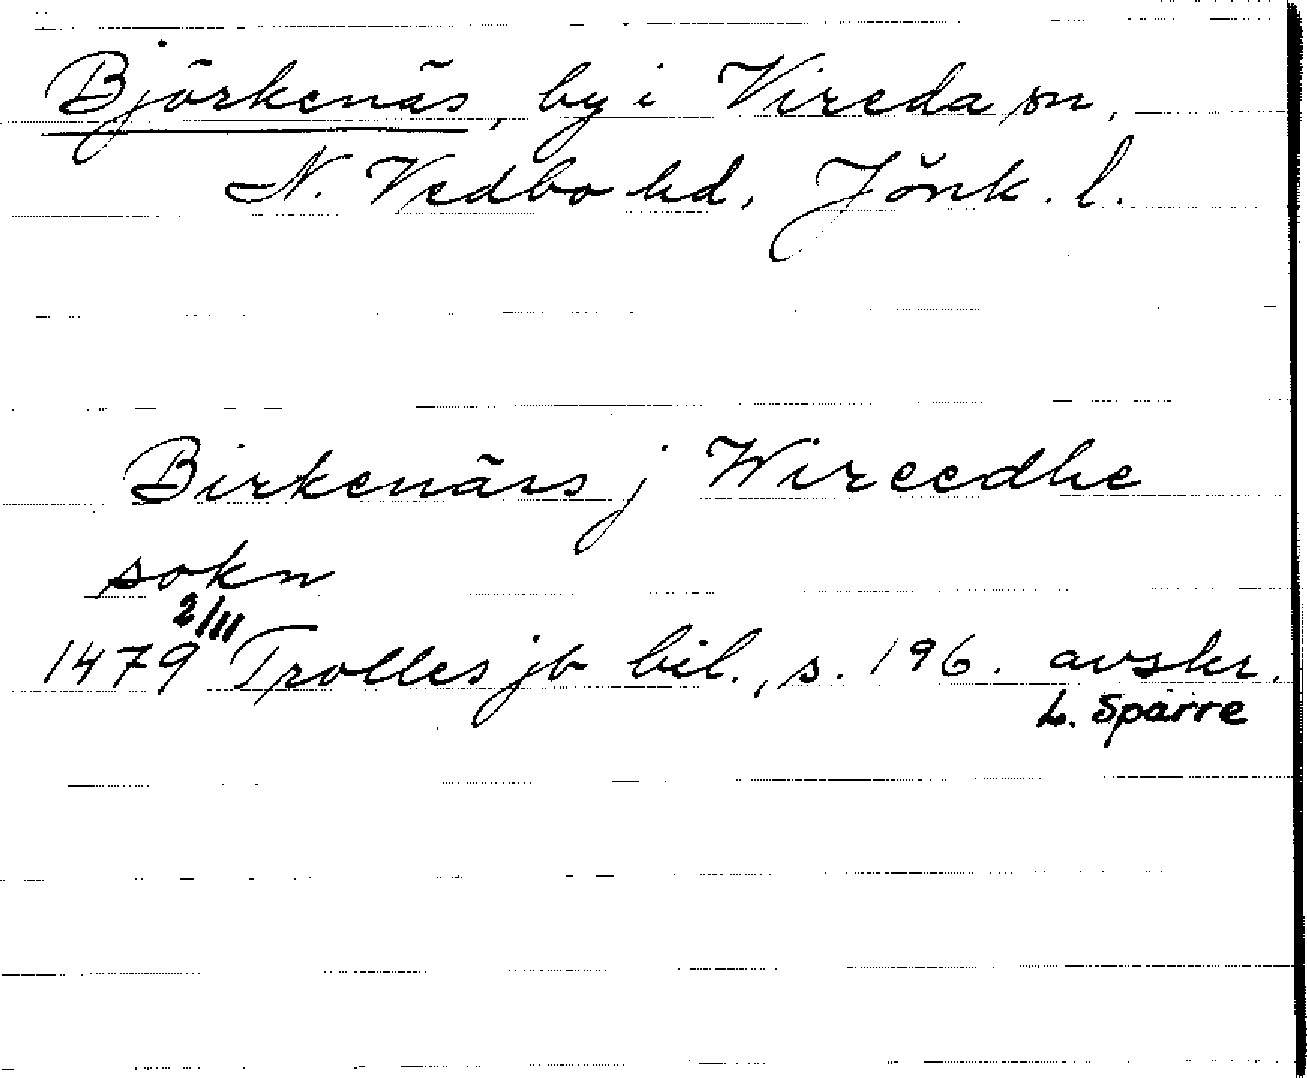 Björkenäs, by i Vireda sn,
N. Vedbo hd, Jönk. l.
Birkenäss j Wireedhe
sokn
1479 2/11 Trolles jb bil., s. 196. avskr.
L. Sparre